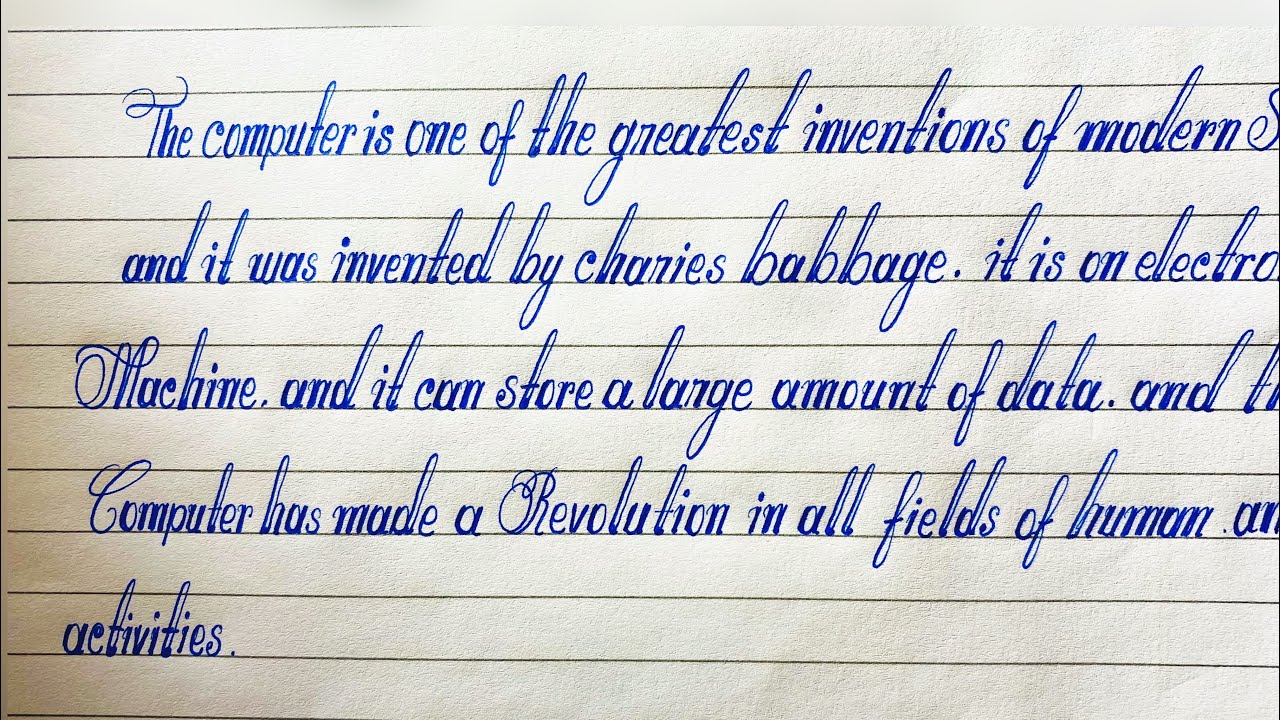 The computer is one of the greatest inventions of modern
and it was invented by charies babbage. it is on electro
Machine. and it can store a large amount of data. and th
Computer has made a Revolution in all fields of human. an
activities.